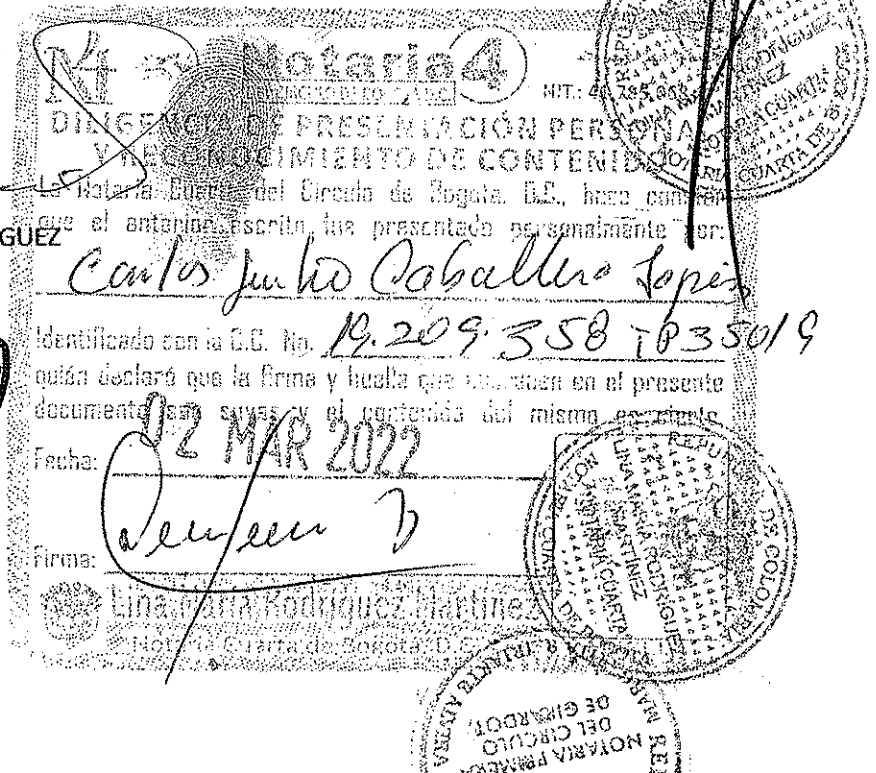 Notaria 4
NIT.:
DILIGENCIA DE PRESENTACIÓN PERSONAL
Y RECONOCIMIENTO DE CONTENIDO
La Notaria Cuarta del Circulo de Bogotá, D.C., hace constar
que el anterior escrito fue presentado personalmente por:
GUEZ
Carlos Julio Caballero Lopez
Identificado con la C.C. No. 19.209.358 TP35019
quién declaró que la firma y huella que aparecen en el presente
documento son suyas y el contenido del mismo es cierto
Fecha: 02 MAR 2022
Firma:
Lina Maria Rodriguez Martinez
Notaria Cuarta de Bogotá, D.C.
REPUBLICA DE COLOMBIA
LINA MARIA RODRIGUEZ
MARTINEZ
NOTARIA CUARTA
NOTARIA CUARTA DE BOGOTA
NOTARIA PRIMERA
DEL CIRCULO
DE GIRARDOT